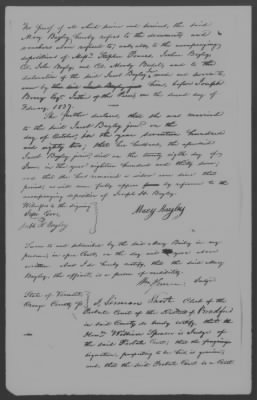 In proof of all which and the said
Mary Bayley hereby refers to the documents and
vouchers above referred to, and also, to the accompanying
depositions of Messrs Stephen Powers, Joshua Bayley,
Col. John Bayley and Col. Moody Bedel, and to the
declaration of the said Jacob Bayley made and sworn to
by him, before Joseph
Berry Esqr Justice of the Peace, on the second day of
February, 1837.
She further declares, that she was married
to the said Jacob Bayley on the
day of October, in the year seventeen hundred
and eighty two; that her husband, the aforesaid
Jacob Bayley, died on the twenty eighth day of
June, in the year eighteen hundred and thirty seven,
and that she has remained a widow ever since that
period, as will more fully appear by reference to the
accompanying deposition of Joseph H. Bayley.
Witnesses to the signing
Mary Bayley
Bayley
Sworn to and subscribed by the said Mary Bayley in my
presence, in open Court, on the day and year above
written. And I do hereby certify, that the said Mary
Bayley, the affiant, is a person of credibility.
Judge
State of Vermont
Orange County
I, Simeon Short Clerk of the
Probate Court of the District of Bradford
in said County do hereby certify, that the
Hon. William Spencer is Judge of
the said Probate Court; that the foregoing
signature, purporting to be his is genuine,
and that the said Probate Court is a Court